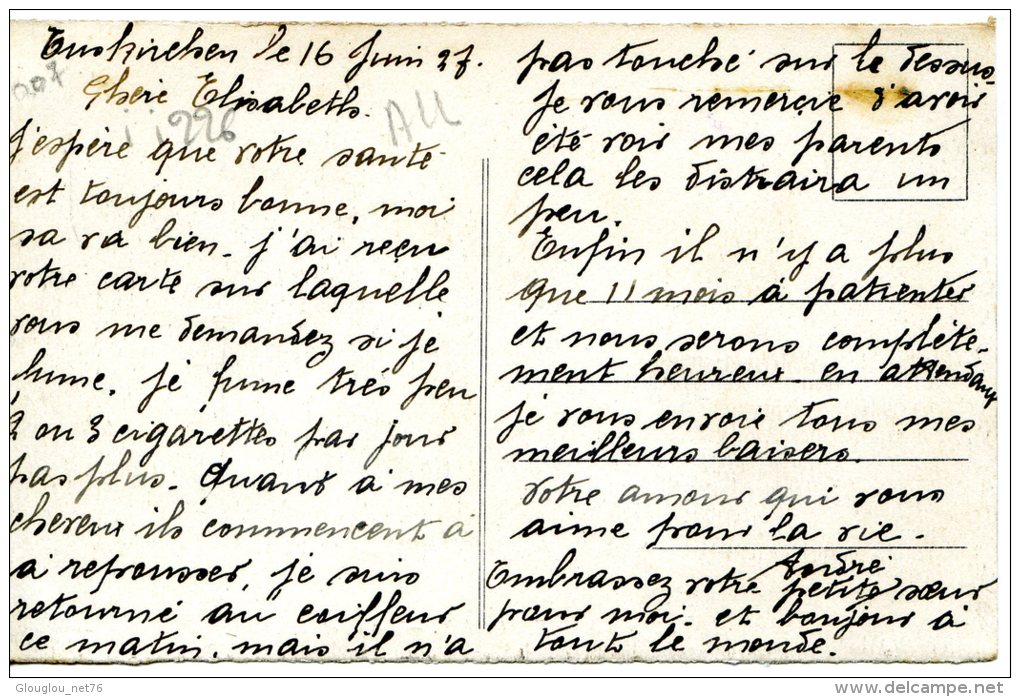 Euskirchen le 16 Juin 27.
Chère Elisabeth.
J'espère que votre santé
est toujours bonne, moi
sa va bien. j'ai reçu
votre carte sur laquelle
vous me demandez si je
fume, je fume très peu
2 ou 3 cigarettes par jour
pas plus. Quant à mes
cheveux ils commencent à
à repousser, je suis
retourné au coiffeur
ce matin, mais il n'a
pas touché sur le dessus.
Je vous remercie d'avoir
été voir mes parents
cela les distraira un
peu.
Enfin il n'y a plus
que 11 mois à patienter
et nous serons complète-
ment heureux. en attendant
je vous envoie tous mes
meilleurs baisers.
Votre amour qui vous
aime pour la vie.
André
Embrassez votre petite sœur
pour moi. et bonjour à
tout le monde.
226
All
Glouglou_net76
www.delcampe.net